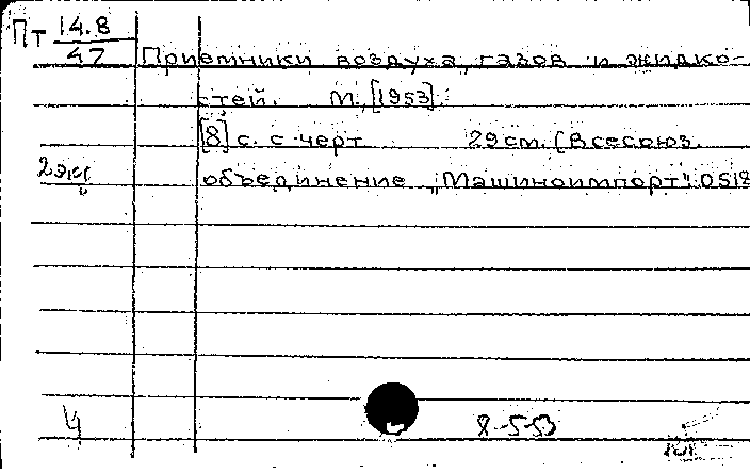 Пт 14.8
47
Приемники воздуха, газов и жидко-
стей. М, [1953].
[8] с. с черт 29 см. (Всесоюз.
2 экз
объединение „Машиноимпорт". 0518
Ц
8-5-53